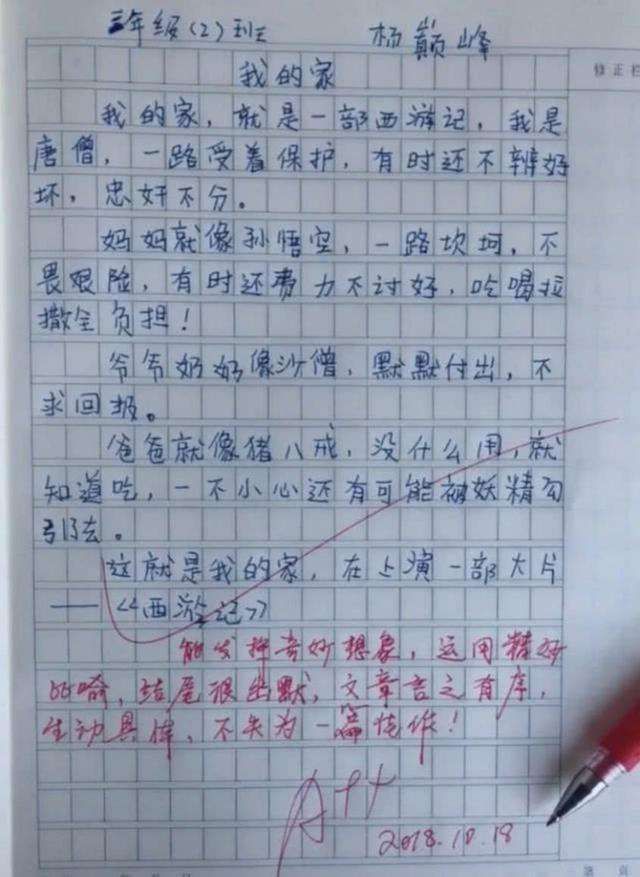 三年级(2)班 杨巅峰
修正栏
我的家
我的家，就是一部西游记，我是
唐僧，一路受着保护，有时还不辨好
坏，忠奸不分。
妈妈就像孙悟空，一路坎坷，不
畏艰险，有时还费力不讨好，吃喝拉
撒全负担！
爷爷奶奶像沙僧，默默付出，不
求回报。
爸爸就像猪八戒，没什么用，就
知道吃，一不小心还有可能被妖精勾
引去。
这就是我的家，在上演一部大片
——《西游记》
能发挥奇妙想象，运用精妙
比喻，结尾很幽默，文章言之有序，
生动具体，不失为一篇佳作！
A++
2018.10.18
第 页